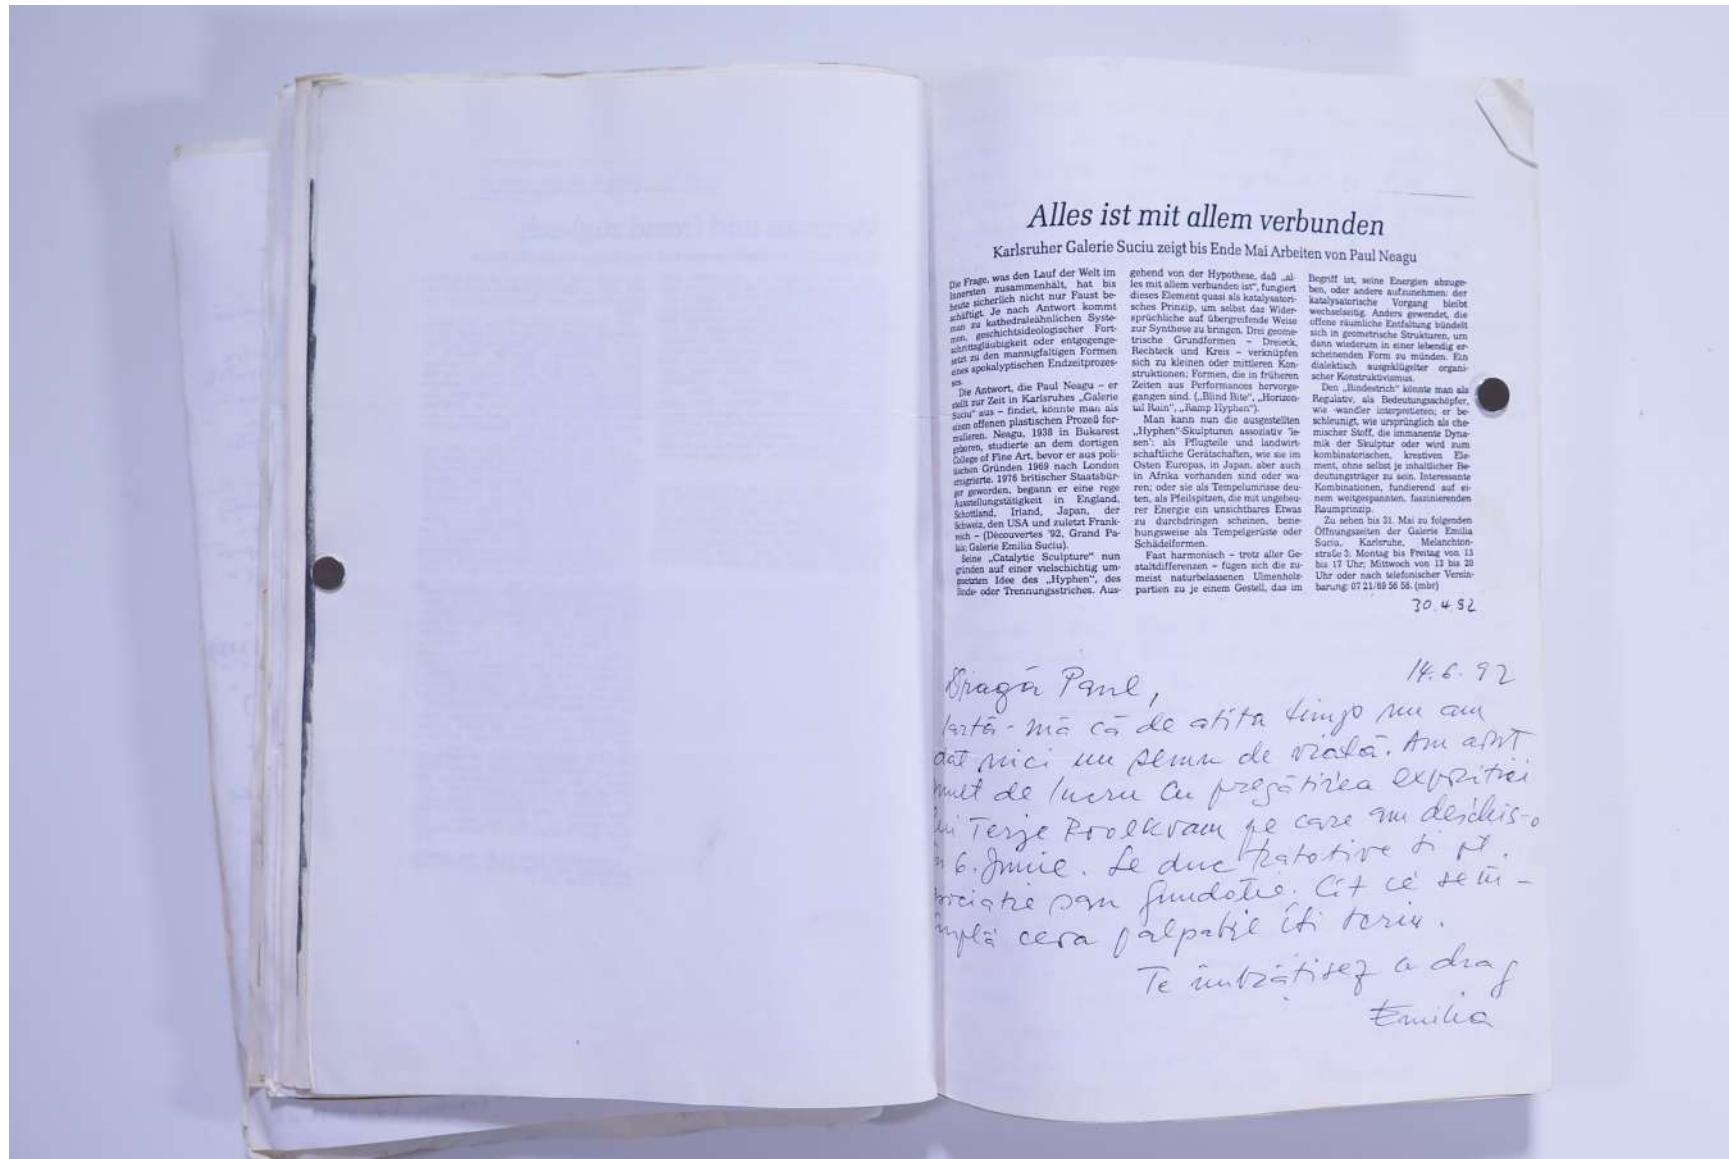 Alles ist mit allem verbunden
Karlsruher Galerie Suciu zeigt bis Ende Mai Arbeiten von Paul Neagu
Die Frage, was den Lauf der Welt im
Innersten zusammenhält, hat bis
heute sicherlich nicht nur Faust be-
schäftigt. Je nach Antwort kommt
man zu kathedraleähnlichen Syste-
men, geschichtsideologischer Fort-
schrittsgläubigkeit oder entgegenge-
setzt zu den mannigfaltigen Formen
eines apokalyptischen Endzeitprozes-
ses.
Die Antwort, die Paul Neagu – er
stellt zur Zeit in Karlsruhes „Galerie
Suciu" aus – findet, könnte man als
einen offenen plastischen Prozeß for-
mulieren. Neagu, 1938 in Bukarest
geboren, studierte an dem dortigen
College of Fine Art, bevor er aus poli-
tischen Gründen 1969 nach London
emigrierte. 1976 britischer Staatsbür-
ger geworden, begann er eine rege
Ausstellungstätigkeit in England,
Schottland, Irland, Japan, der
Schweiz, den USA und zuletzt Frank-
reich – (Découvertes '92, Grand Pa-
lais; Galerie Emilia Suciu).
Seine „Catalytic Sculpture" nun
gründen auf einer vielschichtig um-
gesetzten Idee des „Hyphen", des
Binde- oder Trennungsstriches. Aus-
gehend von der Hypothese, daß „al-
les mit allem verbunden ist", fungiert
dieses Element quasi als katalysatori-
sches Prinzip, um selbst das Wider-
sprüchliche auf übergreifende Weise
zur Synthese zu bringen. Drei geome-
trische Grundformen – Dreieck,
Rechteck und Kreis – verknüpfen
sich zu kleinen oder mittleren Kon-
struktionen; Formen, die in früheren
Zeiten aus Performances hervorge-
gangen sind. („Blind Bite", „Horizon-
tal Rain", „Ramp Hyphen").
Man kann nun die ausgestellten
„Hyphen"-Skulpturen assoziativ 'le-
sen': als Pflugteile und landwirt-
schaftliche Gerätschaften, wie sie im
Osten Europas, in Japan, aber auch
in Afrika vorhanden sind oder wa-
ren; oder sie als Tempelumrisse deu-
ten, als Pfeilspitzen, die mit ungeheu-
rer Energie ein unsichtbares Etwas
zu durchdringen scheinen, bezie-
hungsweise als Tempelgerüste oder
Schädelformen.
Fast harmonisch – trotz aller Ge-
staltdifferenzen – fügen sich die zu-
meist naturbelassenen Ulmenholz-
partien zu je einem Gestell, das im
Begriff ist, seine Energien abzuge-
ben, oder andere aufzunehmen: der
katalysatorische Vorgang bleibt
wechselseitig. Anders gewendet, die
offene räumliche Entfaltung bündelt
sich in geometrische Strukturen, um
dann wiederum in einer lebendig er-
scheinenden Form zu münden. Ein
dialektisch ausgeklügelter organi-
scher Konstruktivismus.
Den „Bindestrich" könnte man als
Regulativ, als Bedeutungsschöpfer,
wie -wandler interpretieren; er be-
schleunigt, wie ursprünglich als che-
mischer Stoff, die immanente Dyna-
mik der Skulptur oder wird zum
kombinatorischen, kreativen Ele-
ment, ohne selbst je inhaltlicher Be-
deutungsträger zu sein. Interessante
Kombinationen, fundierend auf ei-
nem weitgespannten, faszinierenden
Raumprinzip.
Zu sehen bis 31. Mai zu folgenden
Öffnungszeiten der Galerie Emilia
Suciu, Karlsruhe, Melanchton-
straße 3: Montag bis Freitag von 13
bis 17 Uhr; Mittwoch von 13 bis 20
Uhr oder nach telefonischer Verein-
barung: 07 21/69 56 58. (mbr)
30.4.92
14.6.92
Dragă Paul,
Iartă-mă că de atîta timp nu am
dat nici un semn de viață. Am avut
mult de lucru cu pregătirea expoziției
lui Terje Roalkvam pe care am deschis-o
în 6. Junie. Se duc tratative și pt.
sau fundație. Cît ce se în-
tîmplă ceva palpabil îți scriu.
Te îmbrățișez cu drag
Emilia